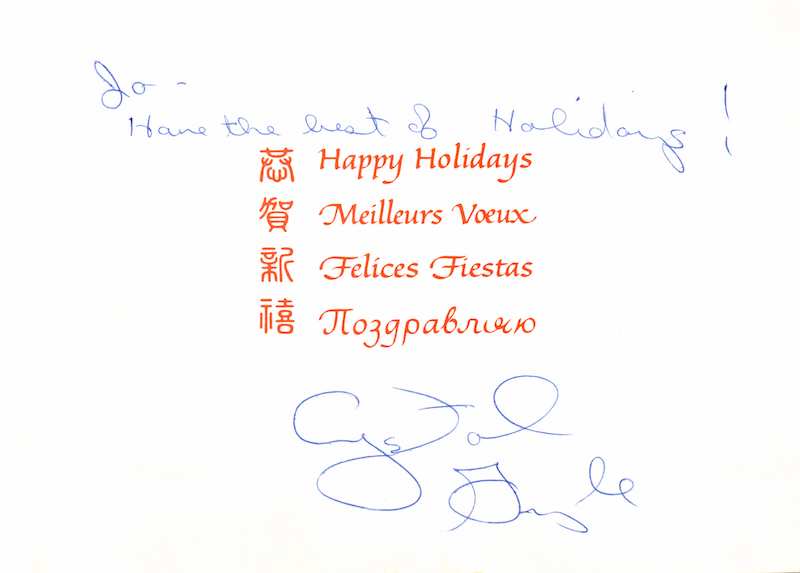 Jo -
Have the best of Holidays!
恭 Happy Holidays
賀 Meilleurs Vœux
新 Felices Fiestas
禧 Поздравляю
Crystal
Gayle